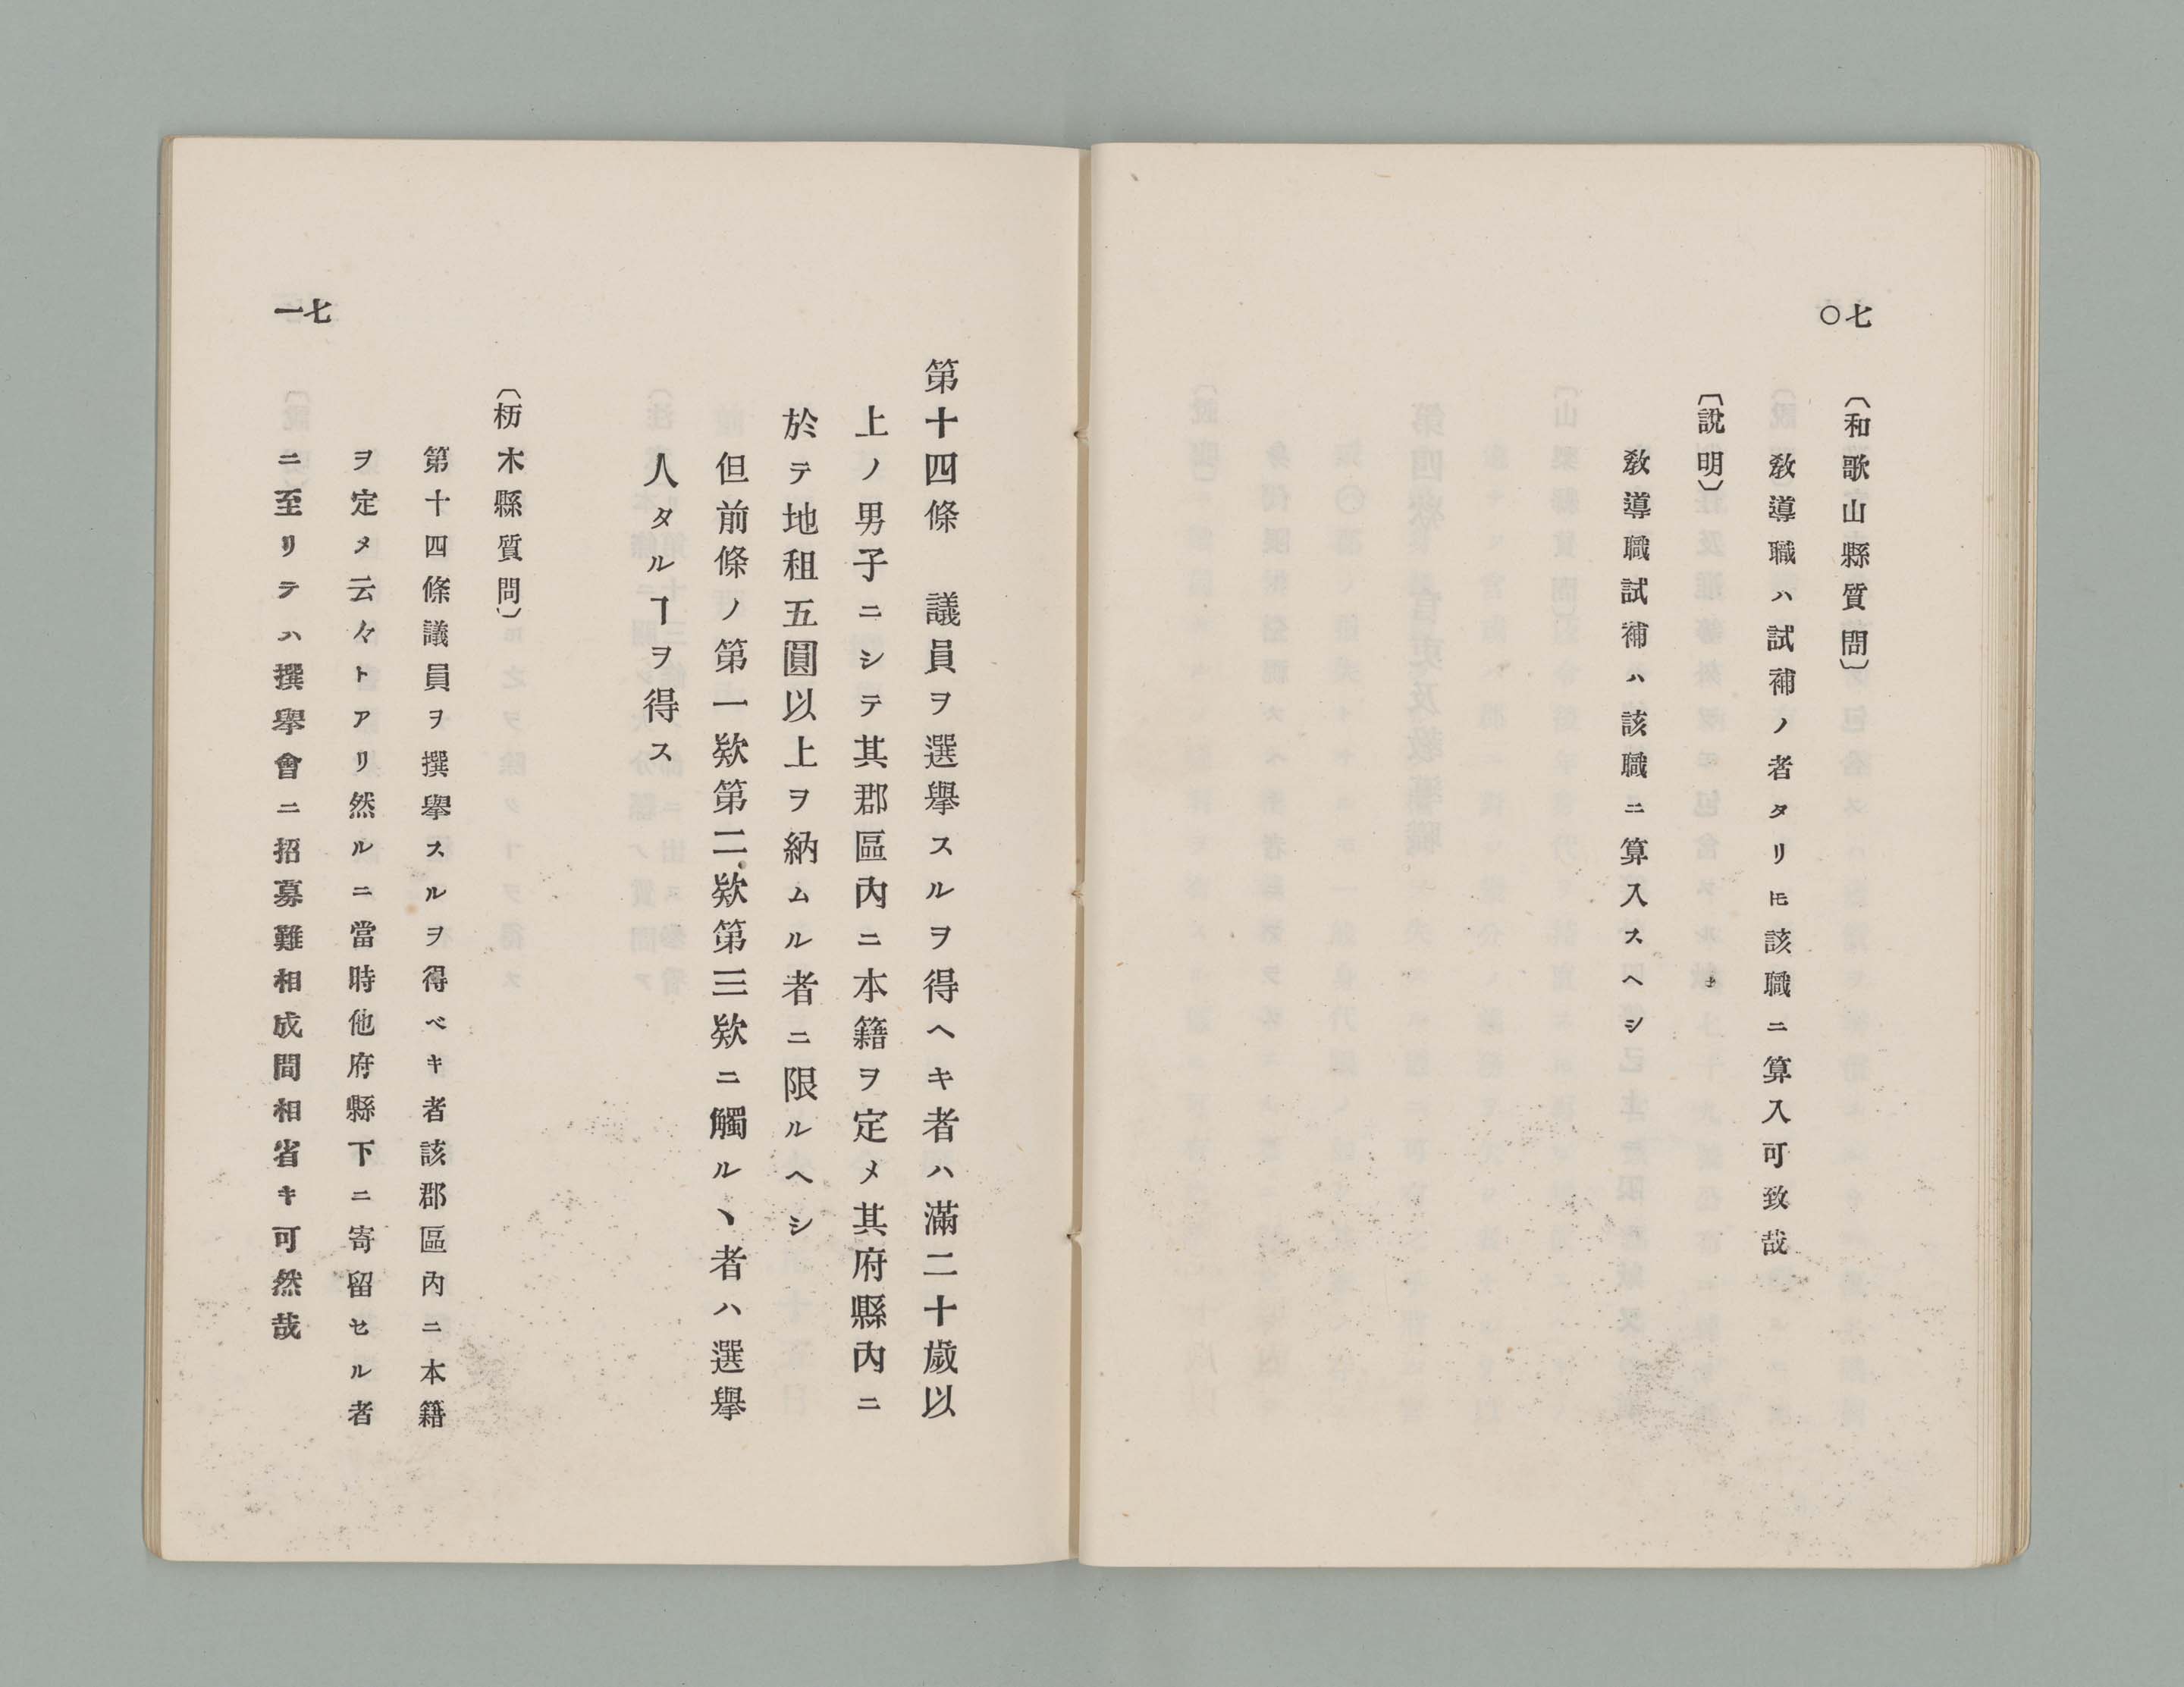 七〇
〔和歌山縣質問〕
敎導職ハ試補ノ者タリ𪜈該職ニ算入可致哉
〔說明〕
敎導職試補ハ該職ニ算入スヘシ
第十四條　議員ヲ選擧スルヲ得ヘキ者ハ滿二十歲以
上ノ男子ニシテ其郡區內ニ本籍ヲ定メ其府縣內ニ
於テ地租五圓以上ヲ納ムル者ニ限ルヘシ
但前條ノ第一欵第二欵第三欵ニ觸ルヽ者ハ選擧
人タルヿヲ得ス
〔栃木縣質問〕
第十四條議員ヲ撰擧スルヲ得ベキ者該郡區內ニ本籍
ヲ定メ云々トアリ然ルニ當時他府縣下ニ寄留セル者
ニ至リテハ撰擧會ニ招募難相成間相省キ可然哉
七一